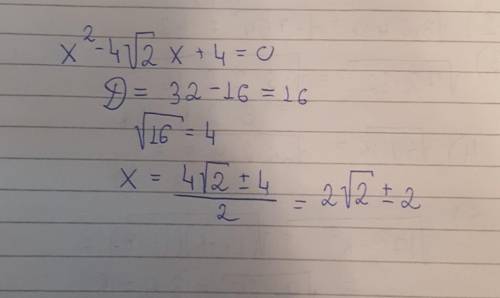 x² - 4√2 x + 4 = 0
D = 32 - 16 = 16
√16 = 4
x = (4√2 ± 4)/2 = 2√2 ± 2